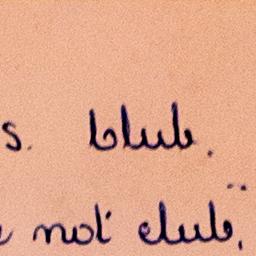 s. blub.
not club,